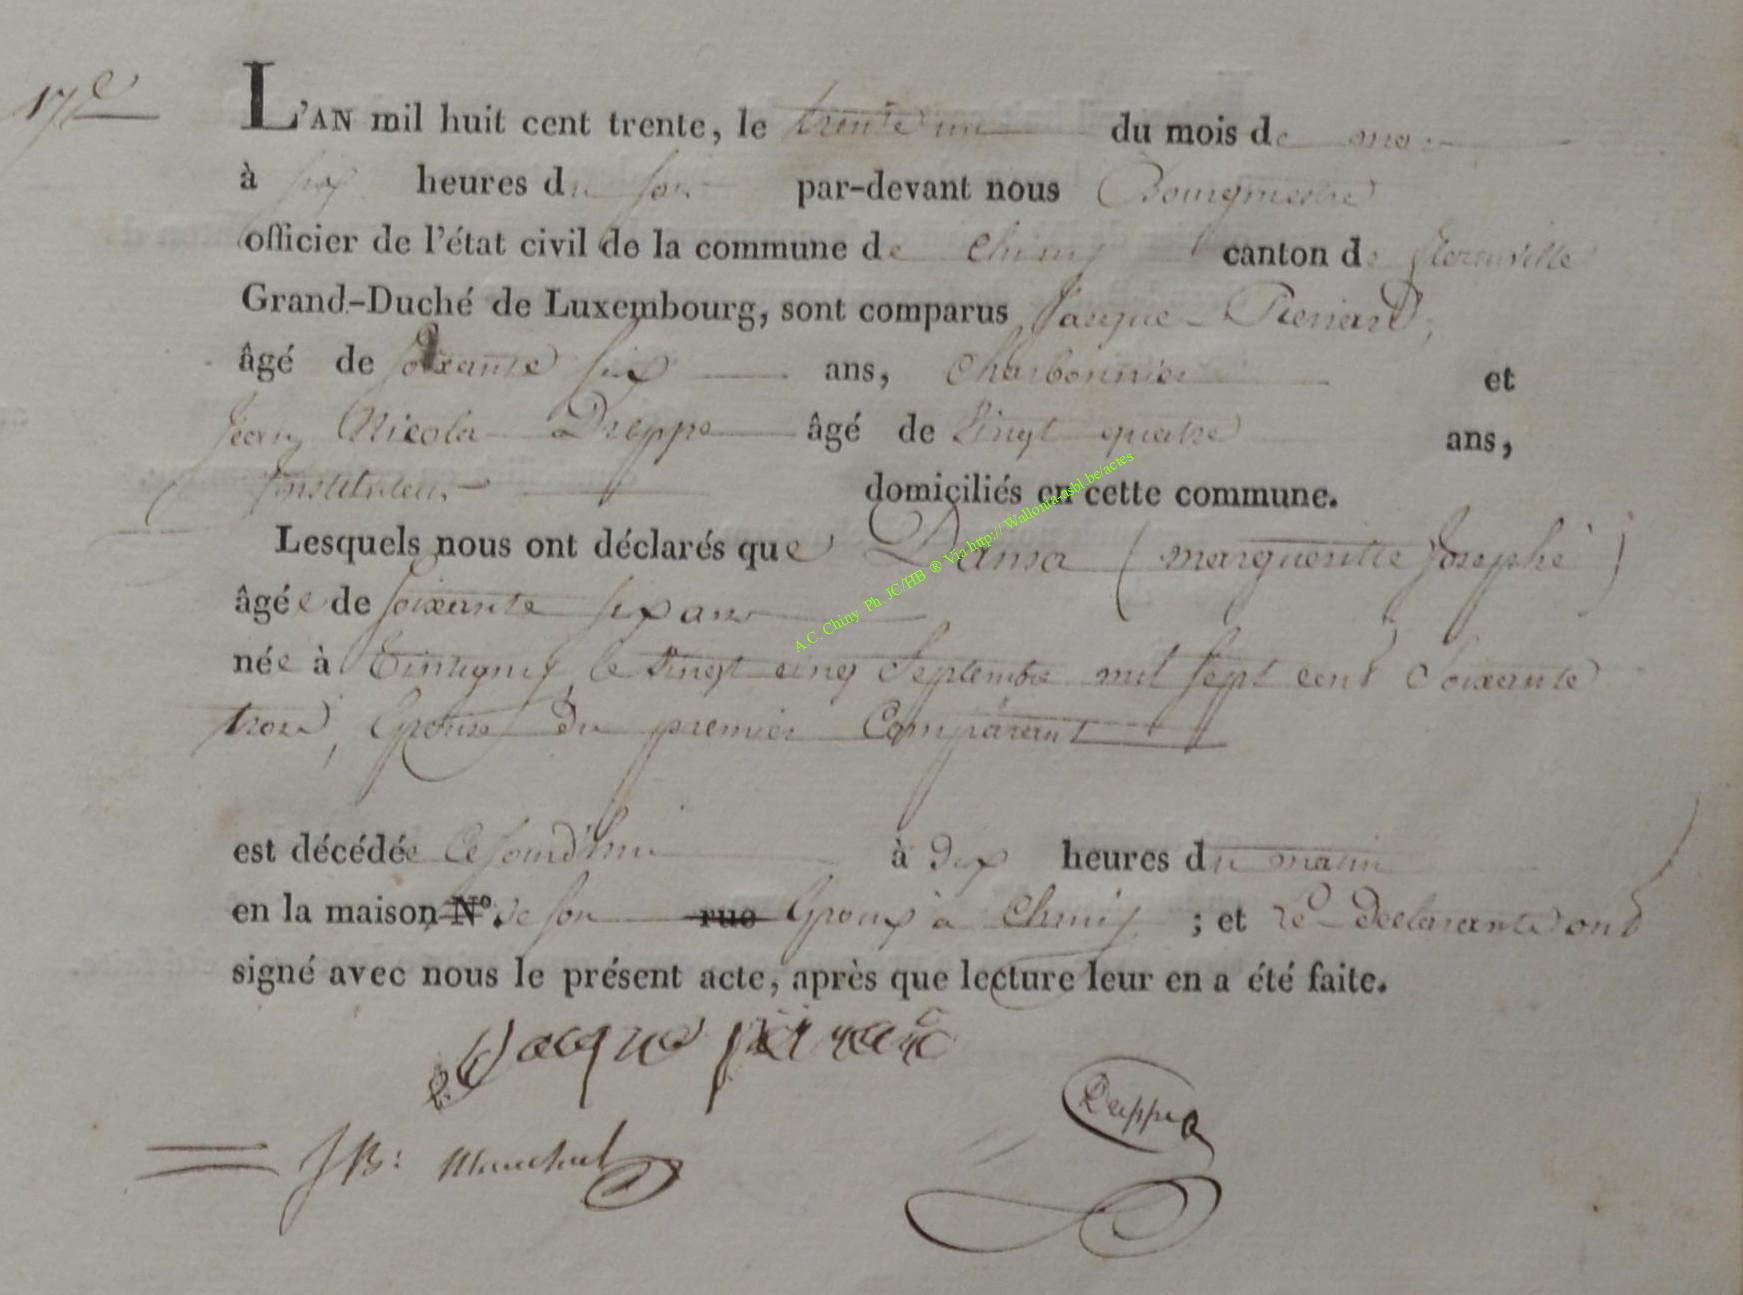 17e
L'AN mil huit cent trente, le trente un du mois de mai
à six heures du soir par-devant nous Bourgmestre
officier de l'état civil de la commune de Chiny canton de florenville
Grand-Duché de Luxembourg, sont comparus Jacque Pierrard,
âgé de soixante six ans, Charbonnier et
Jean Nicola Dreppe âgé de Vingt quatre ans,
Instituteur domiciliés en cette commune.
Lesquels nous ont déclarés que Dansa (margueritte Josephe)
âgée de soixante six ans
née à Tintigny, le Vingt cinq Septembre mil sept cent Soixante
trois, Epouse du premier Comparant
est décédée Ce jourd'hui à dix heures du matin
en la maison No. de son rue Epoux à Chiny ; et les declarants ont
signé avec nous le présent acte, après que lecture leur en a été faite.
Jacque
Dreppe
JB: Marchal
A.C. Chiny. Ph. JC/HB ® Via http:// Wallonia-asbl.be/actes